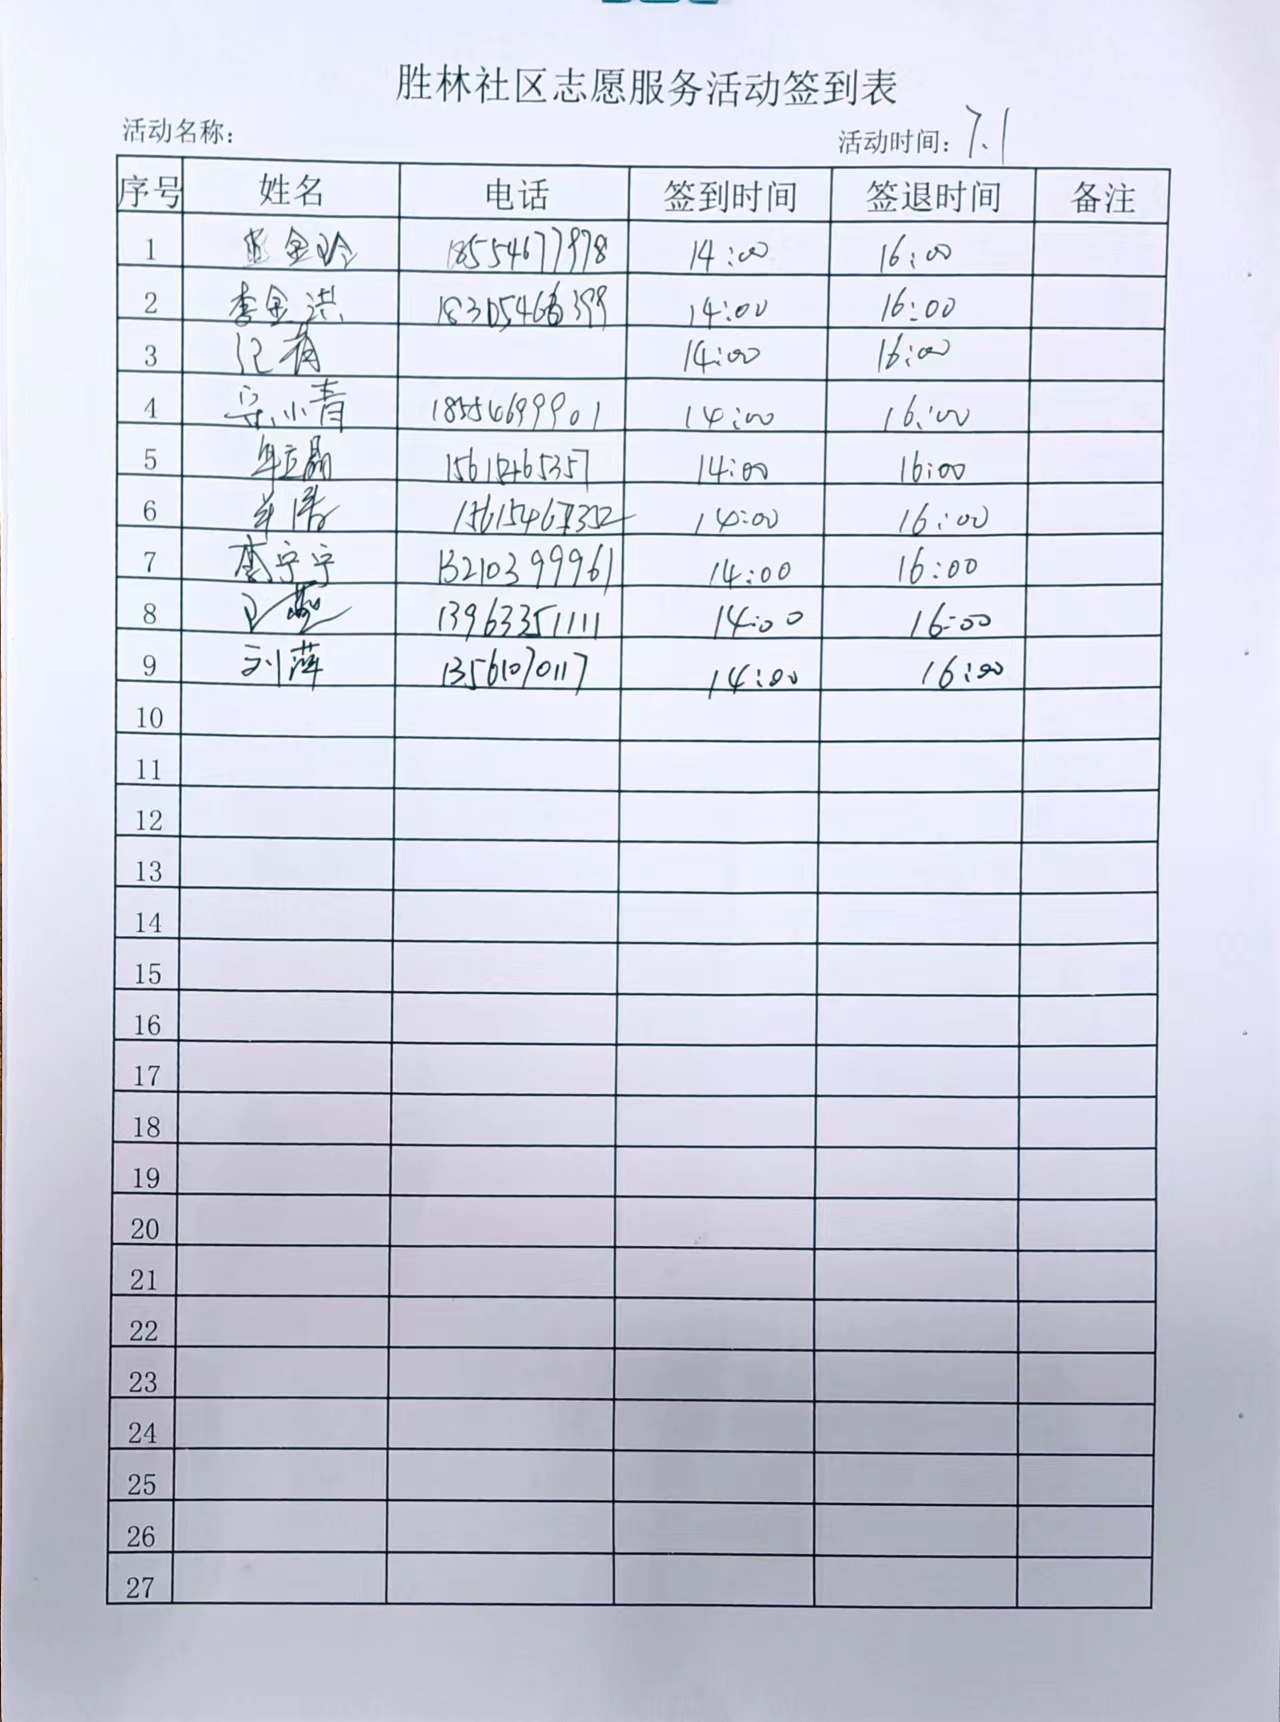 胜林社区志愿服务活动签到表
活动名称： 活动时间：7.1
序号 姓名 电话 签到时间 签退时间 备注
1 金玲 18554677978 14:00 16:00
2 李金洪 18305466399 14:00 16:00
3 14:00 16:00
4 宋小青 18554699901 14:00 16:00
5 牟立晶 15615465357 14:00 16:00
6 14:00 16:00
7 李宁宁 13210399961 14:00 16:00
8 王燕 13963351111 14:00 16:00
9 刘萍 13561070117 14:00 16:00
10
11
12
13
14
15
16
17
18
19
20
21
22
23
24
25
26
27